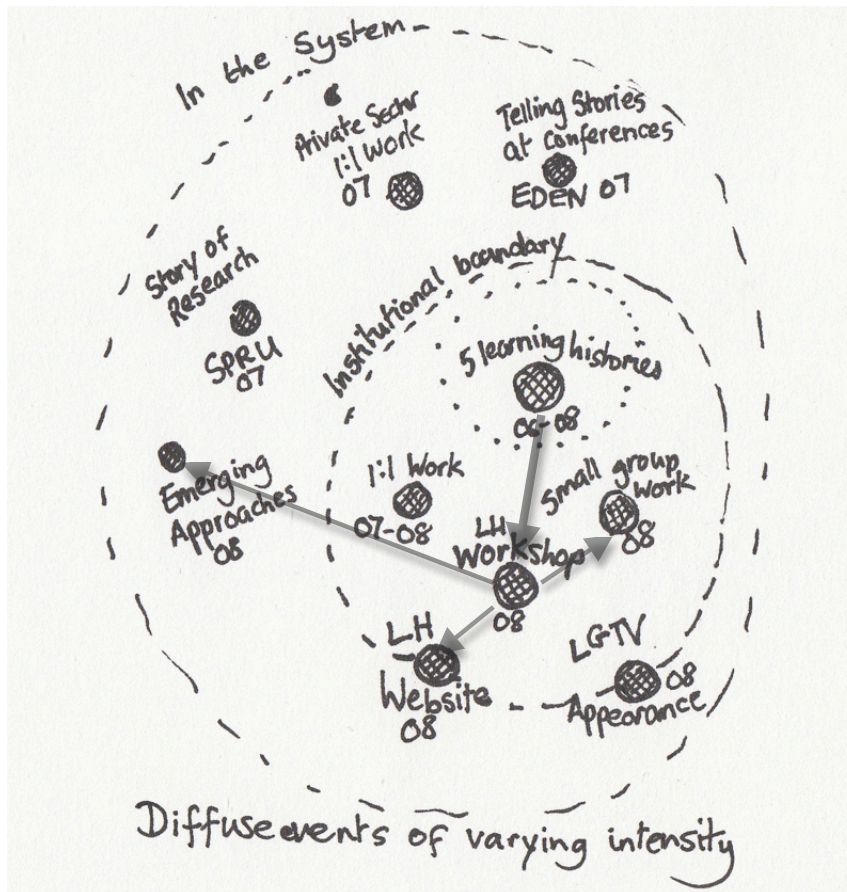 In the System
Private Sectr
1:1 Work
07
Telling Stories
at Conferences
EDEN 07
Story of
Research
SPRU
07
Institutional boundary
5 learning histories
06-08
1:1 Work
07-08
Small group
Work
08
Emerging
Approaches
08
LH
Workshop
08
LH
Website
08
LGTV
08
Appearance
Diffuse events of varying intensity